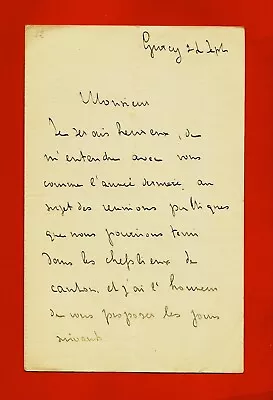 Gurcy 22 Sept
Monsieur
Je serais heureux, de
m'entendre avec vous
comme l'année dernière, au
sujet des reunions publiques
que nous pourrions tenir
dans les chefs lieux de
canton, et j'ai l'honneur
de vous proposer les jours
suivants